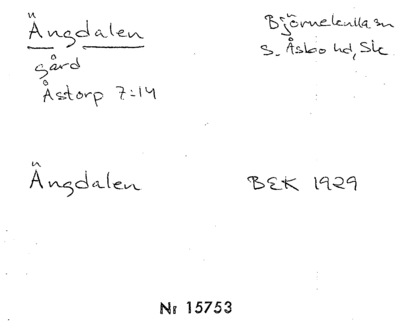 Ängdalen
gård
Åstorp 7:14
Björnekulla sn
S. Åsbo hd, Sk
Ängdalen
BEK 1929
Nr 15753